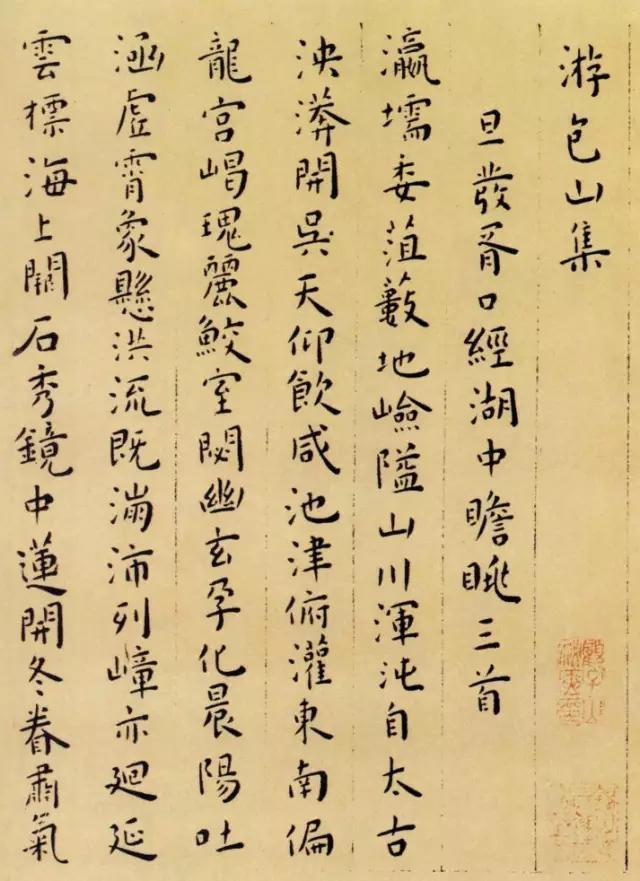 游包山集
旦發胥口經湖中瞻眺三首
瀛壖委菹藪地嶮隘山川渾沌自太古
泱漭開吳天仰飲咸池津俯灌東南偏
龍宮崵瑰麗鮫室閟幽玄孕化晨陽吐
涵虛霄象懸洪流既滿沛列嶂亦廻延
雲標海上關石秀鏡中蓮開冬眷肅氣